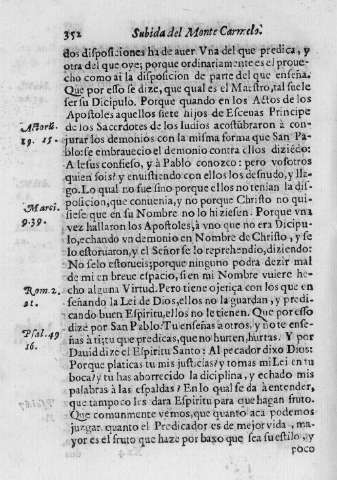 352 Subida del Monte Carmelo.
dos disposiciones ha de auer Vna del que predica, y
otra del que oye; porque ordinariamente es el proue-
cho como ai la disposicion de parte del que enseña.
Que por esso se dize, que qual es el Maestro, tal suele
ser su Dicipulo. Porque quando en los Actos de los
Apostoles aquellos siete hijos de Escenas Principe
Actorũ. de los Sacerdotes de los Iudios acostũbraron à con-
19. 15. jurar los demonios con la misma forma que San Pa-
blo: se embrauecio el demonio contra ellos diziẽdo:
A Iesus confieso, y à Pablo conozco: pero vosotros
quien sois? y enuistiendo con ellos los desnudo, y lla-
go. Lo qual no fue sino porque ellos no tenian la dis-
Marci. posicion, que conuenia, y no porque Christo no qui-
9. 39. siese que en su Nombre no lo hiziesen. Porque vna
vez hallaron los Apostoles, à vno que no era Dicipu-
lo, echando vn demonio en Nombre de Christo, y se
lo estoruaron, y el Señor se lo reprehendio, diziendo:
No selo estorueis: porque ninguno podra dezir mal
de mi en breue espacio, si en mi Nombre vuiere he-
Rom. 2. cho alguna Virtud. Pero tiene ojeriça con los que en
21. señando la Lei de Dios, ellos no la guardan, y predi-
cando buen Espiritu, ellos no le tienen. Que por esso
dizé por San Pablo: Tu enseñas a otros, y no te ense-
Psal. 49 ñas à ti? tu que predicas, que no hurten, hurtas. Y por
16. Dauid dize el Espiritu Santo: Al pecador dixo Dios:
Porque platicas tu mis justicias? y tomas mi Lei en tu
boca? y tu has aborrecido la diciplina, y echado mis
palabras à las espaldas? En lo qual se da à entender,
que tampoco les dara Espiritu para que hagan fruto.
Que comunmente vemos, que quanto aca podemos
juzgar, quanto el Predicador es de mejor vida, ma-
yor es el fruto que haze por baxo que sea su estilo, y
poco